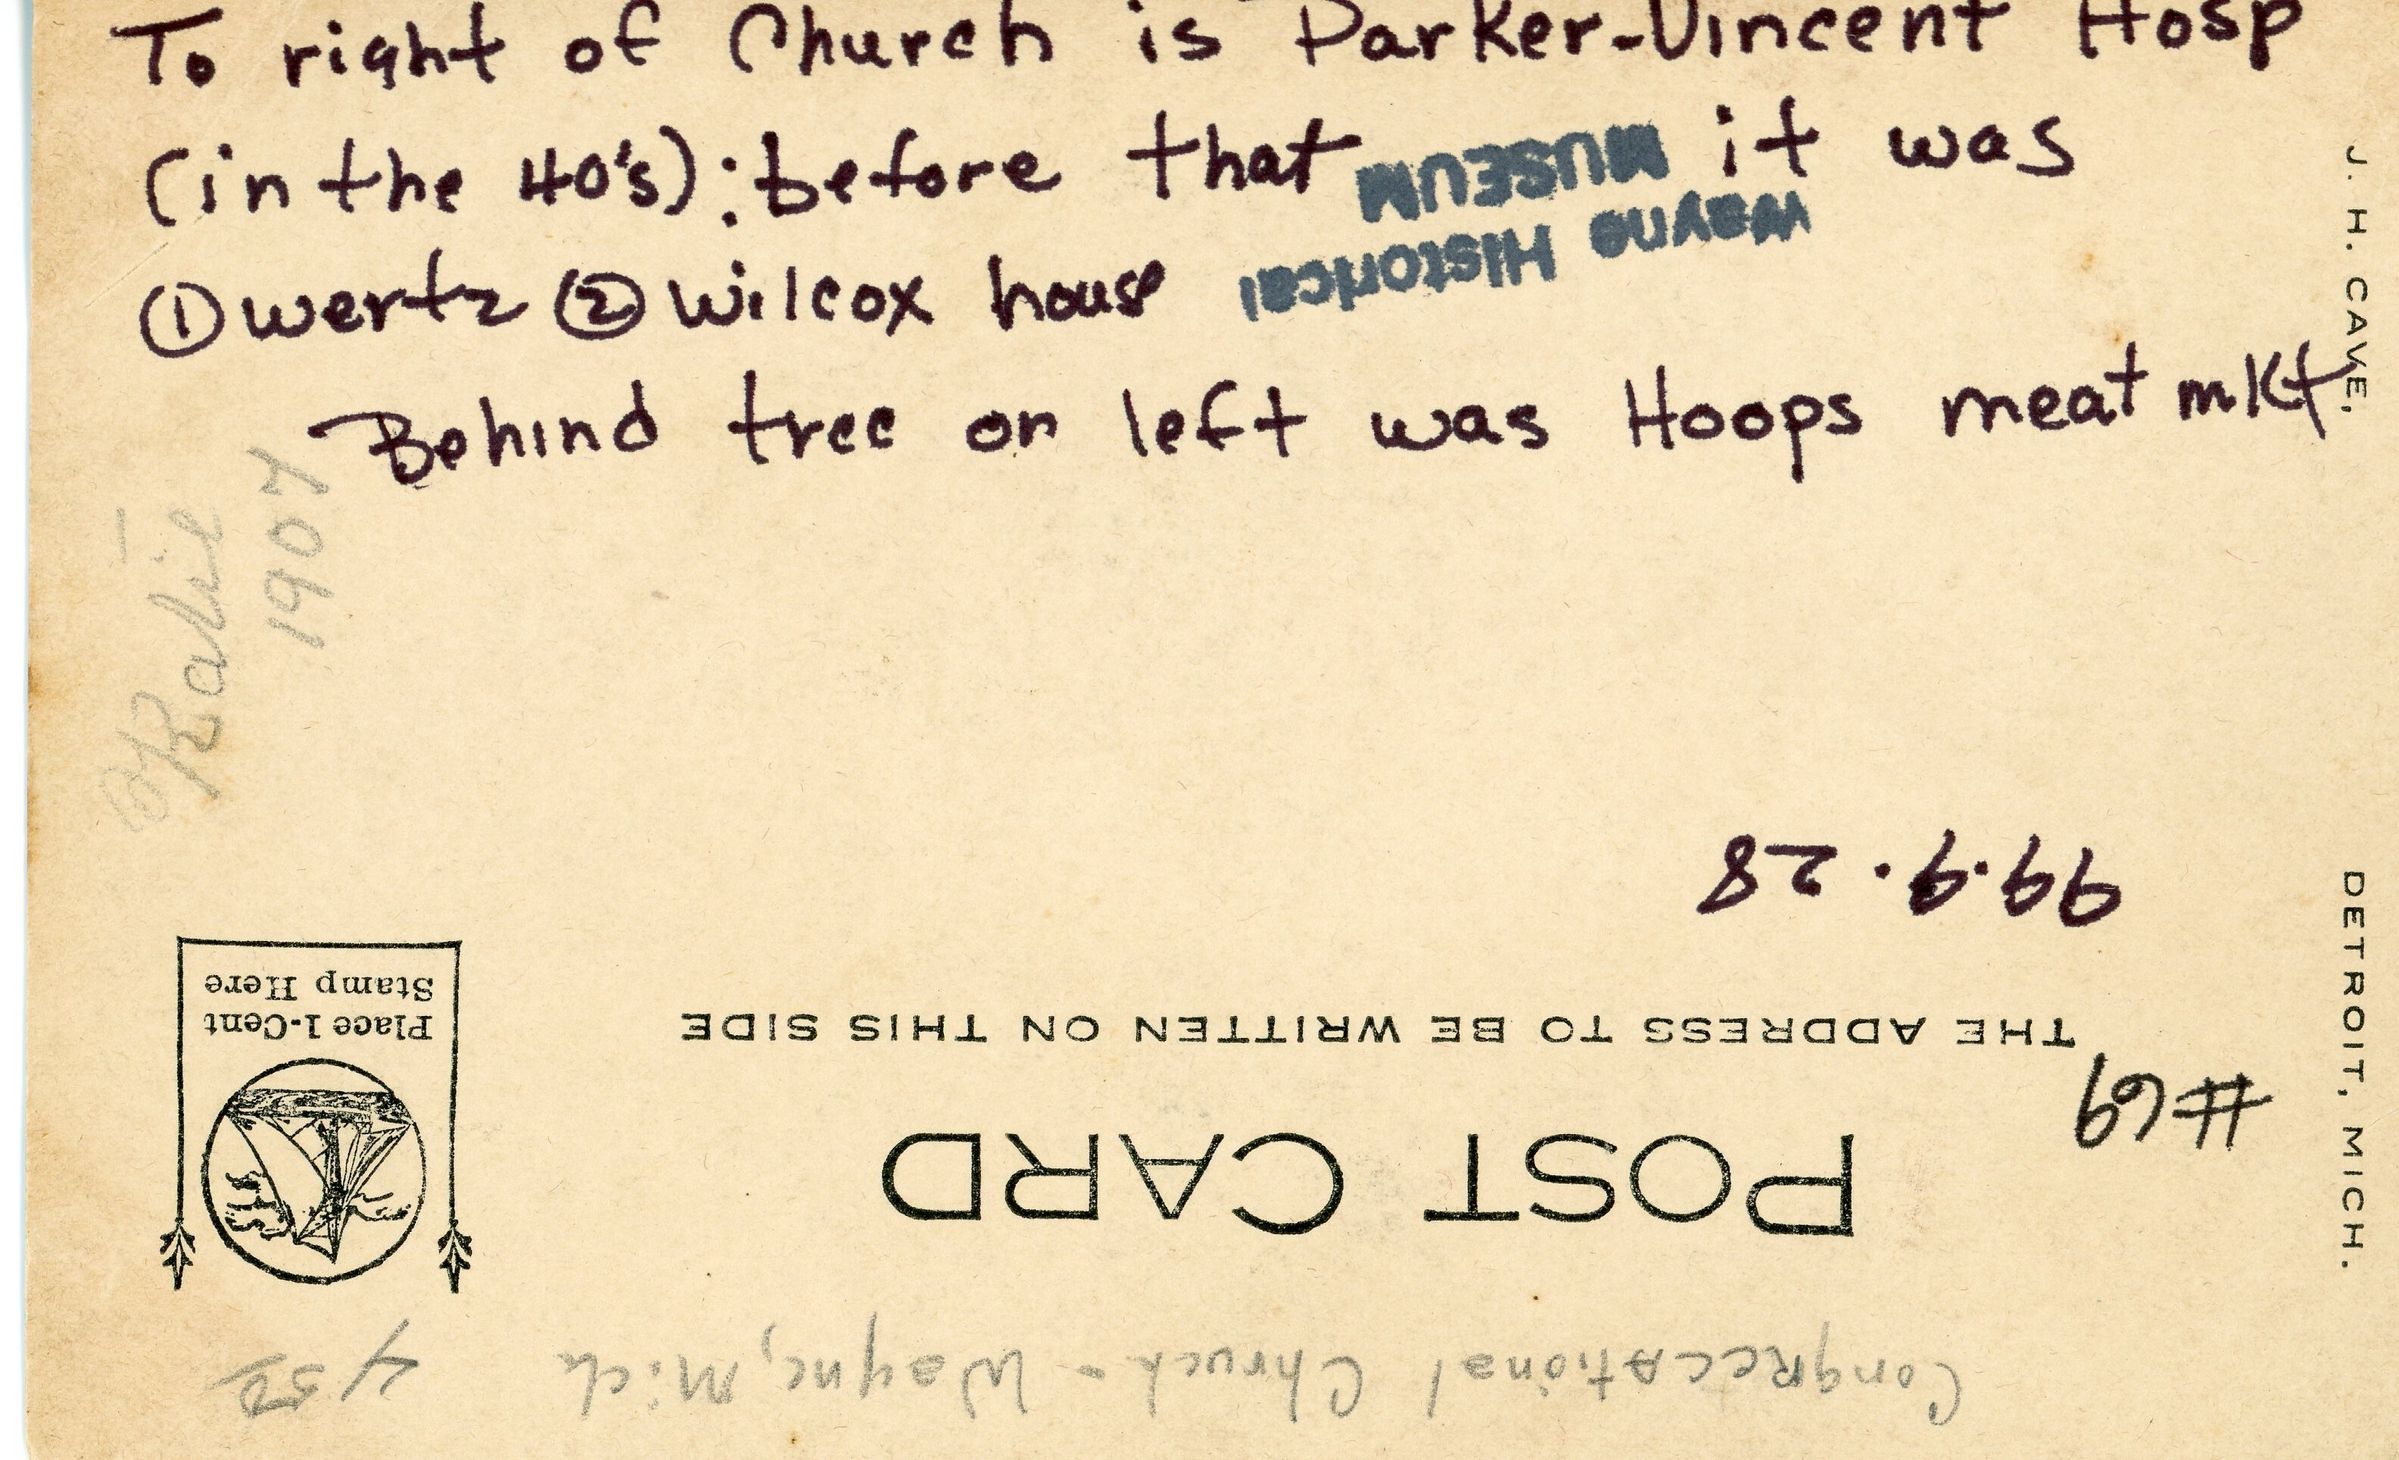 To right of Church is Parker-Vincent Hosp
(in the 40's): before that it was
① wertz ② Wilcox house
Behind tree on left was Hoops meat mkt
Wayne Historical
MUSEUM
J. H. CAVE,
DETROIT, MICH.
1907
99.9.28
#69
Congrecational Chruch - Wayne, Mich
POST CARD
THE ADDRESS TO BE WRITTEN ON THIS SIDE
Place 1-Cent
Stamp Here